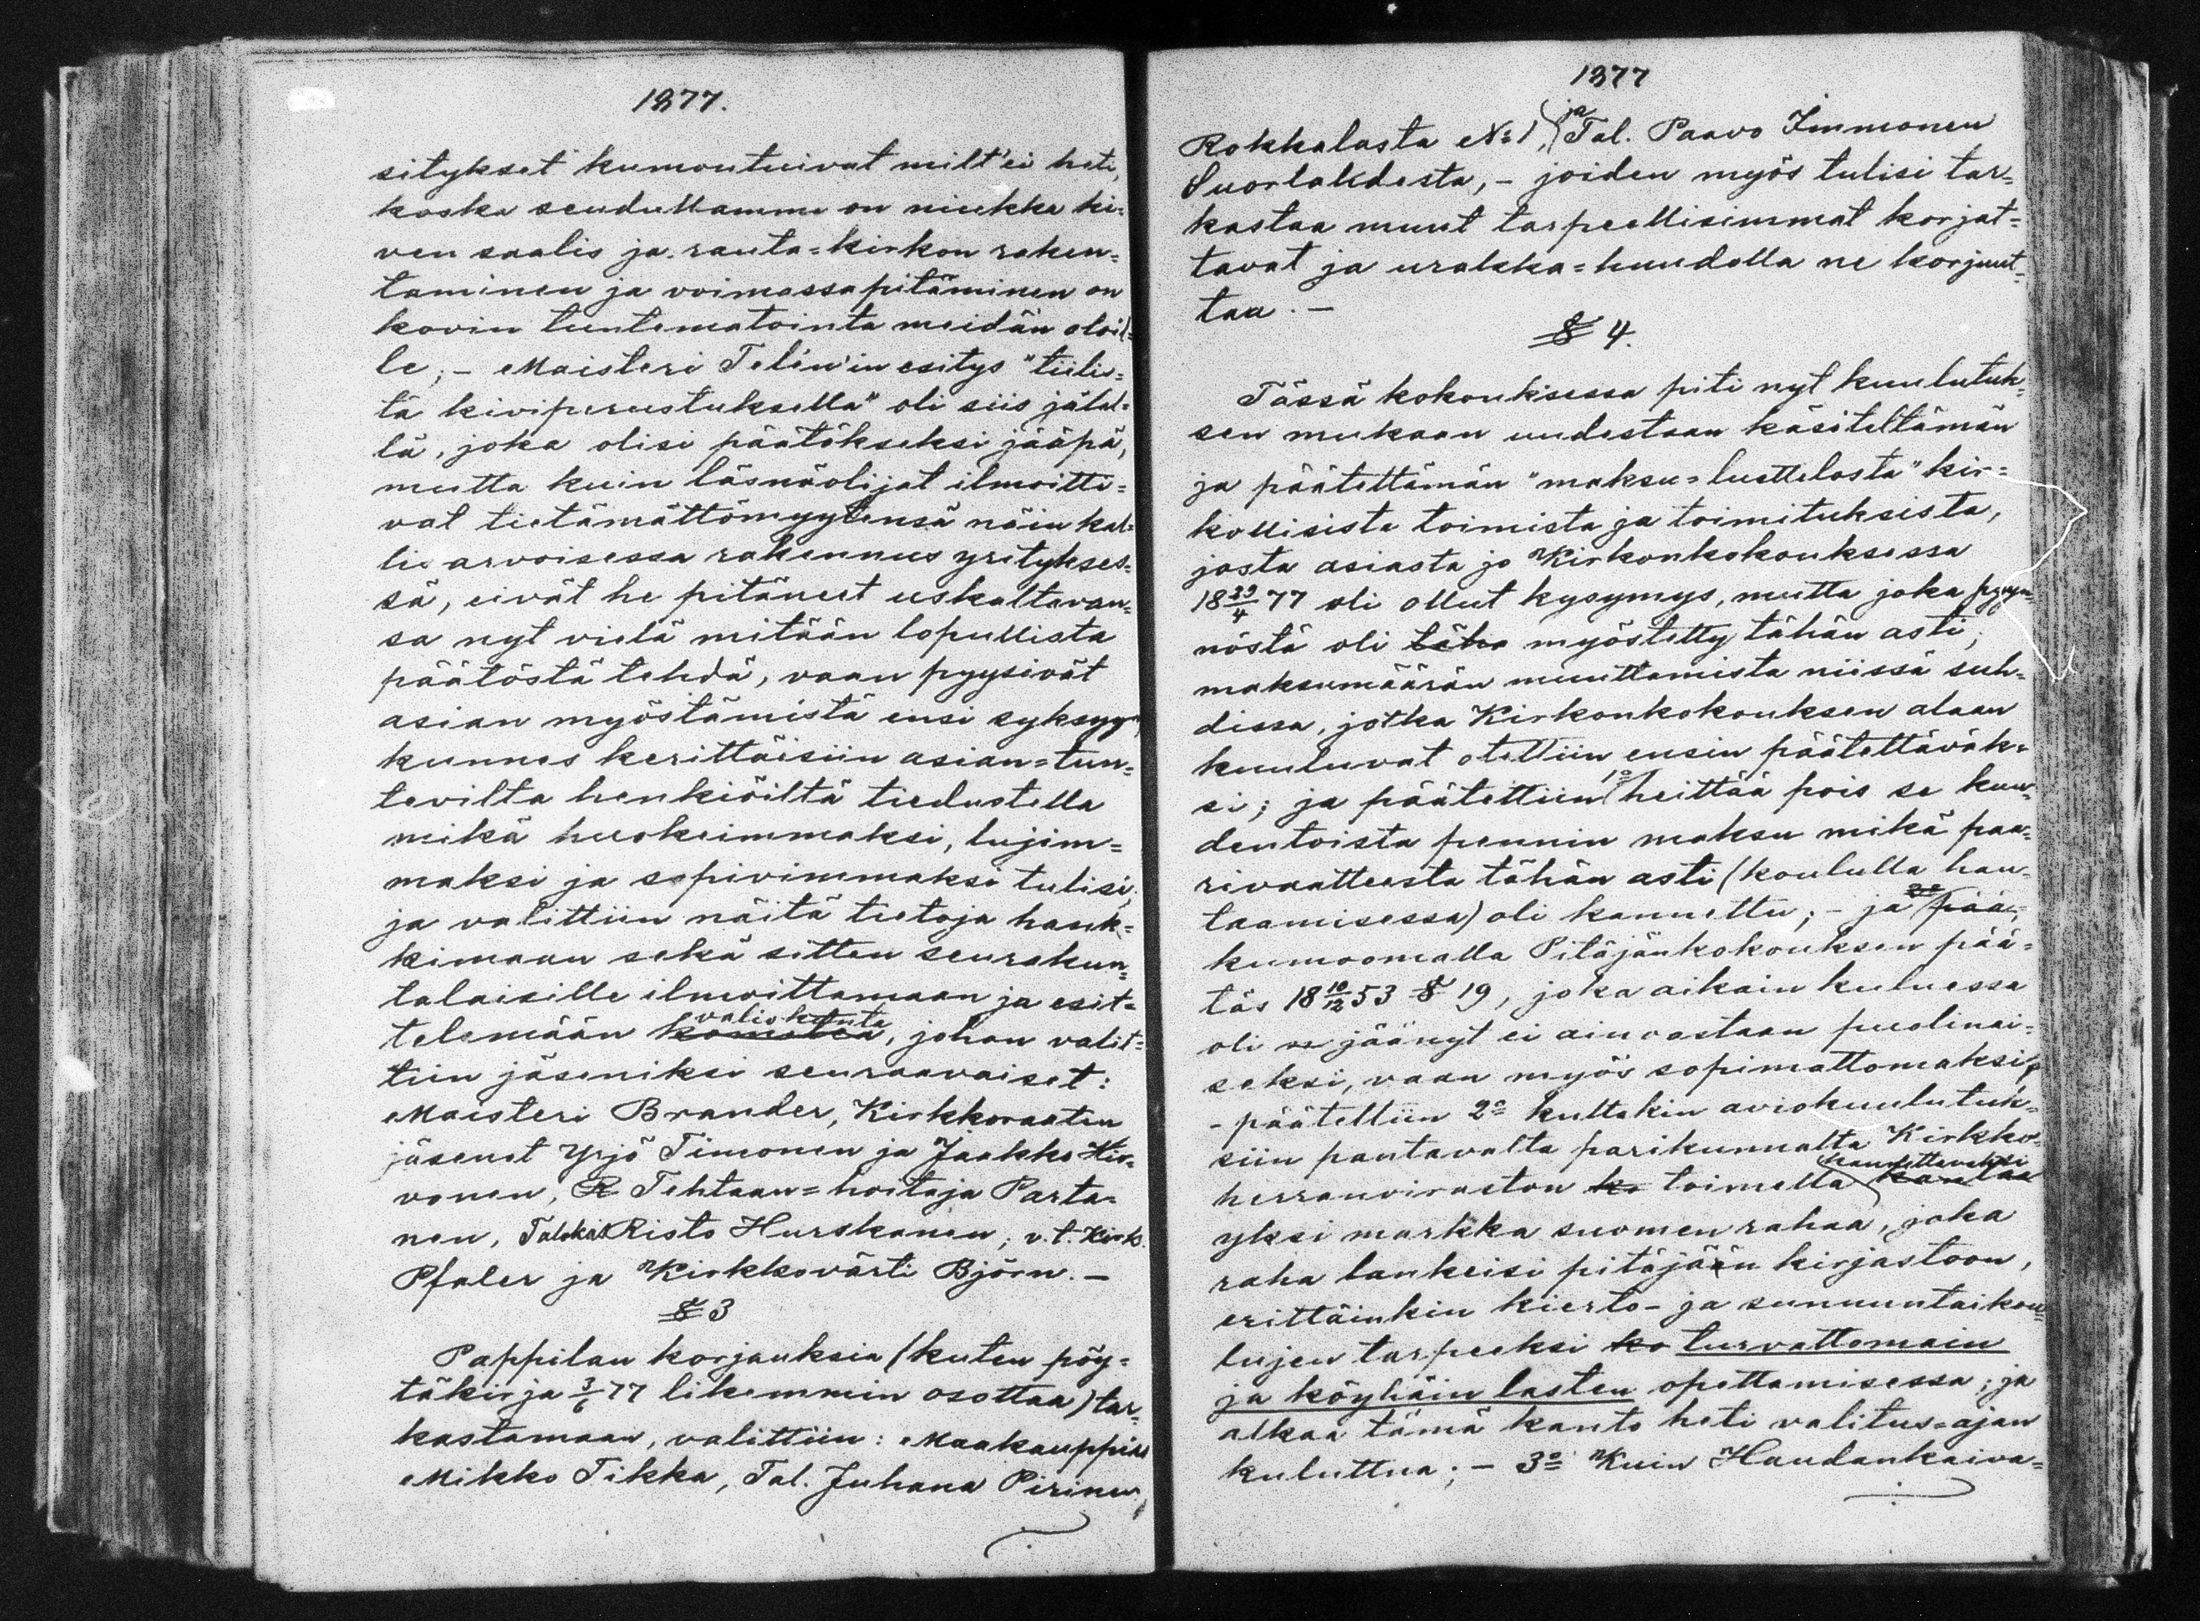 1877.
sitykset kumoutuivat milt'ei heti,
koska seudullamme on niukka ki=
ven saalis ja rauta=kirkon raken=
taminen ja voimassapitäminen on
kovin tuntematointa meidän oloil=
le; - Maisteri Telén'in esitys "tiilis=
tä kiviperustuksella" oli siis jälel=
lä, joka olisi päätökseksi jääpä,
mutta kuin läsnäolijat ilmoitti=
vat tietämättömyytensä näin kal=
lis arvoisessa rakennus yritykses=
sä, eivät he pitäneet uskaltavan=
sa nyt vielä mitään lopullista
päätöstä tehdä, vaan pyysivät
asian myöstämistä ensi syksyyn,
kunnes kerittäisiin asian=tun=
tevilta henkiöiltä tiedustella
mikä huokeimmaksi, lujim=
maksi ja sopivimmaksi tulisi,
ja valittiin näitä tietoja hank=
kimaan sekä sitten seurakun=
talaisille ilmoittamaan ja esit=
telemään komitea valiokunta, johon valit=
tiin jäseniksi seuraavaiset:
Maisteri Brander, Kirkkoraatin
jäsenet Yrjö Timonen ja Jaakko Hir=
vonen, R Tehtaan=hoitaja Parta=
nen, Talokas Risto Hurskanen, v.t. Kirk.
Pfaler ja Kirkkovärti Björn. -
§ 3
Pappilan korjauksia (kuten pöy=
täkirja 3/6 77 likemmin osottaa) tar=
kastamaan, valittiin: Maakauppias
Mikko Tikka, Tal. Juhana Pirinen,
1877
Rokkalasta No 1, ja Tal. Paavo Immonen
Suorlahdesta, - joiden myös tulisi tar=
kastaa muut tarpeellisimmat korjat=
tavat ja urakka=huudolla ne korjuut=
taa. -
§ 4.
Tässä kokouksessa piti nyt kuulutuk=
sen mukaan uudestaan käsiteltämän
ja päätettämän "maksu=luettelosta" kir=
kollisista toimista ja toimituksista,
josta asiasta jo Kirkonkokouksessa
18 29/4 77 oli ollut kysymys, mutta joka pyyn=
nöstä oli täha myöstetty tähän asti;
maksumäärän muuttamista niissä suh=
dissa, jotka Kirkonkokouksen alaan
kuuluvat otettiin ensin päätettäväk=
si; ja päätettiin 1o heittää pois se kuu=
dentoista pennin maksu mikä paa=
rivaatteesta tähän asti (koululla hau=
taamisessa) oli kannettu; - ja pää=
kumoomalla Pitäjänkokouksen pää=
täs 18 10/12 53 § 19, joka aikain kuluessa
oli jäänyt ei ainoastaan puolinai=
seksi, vaan myös sopimattomaksi,
- päätettiin 2o kultakin aviokuulutuk=
siin pantavalta parikunnalta Kirkko=
herranviraston ko toimella kantaa kannettavaksi
yksi markka suomen rahaa, joka
raha lankeisi pitäjään kirjastoon,
erittäinkin kierto- ja sunnuntaikou=
lujen tarpeeksi ko turvattomain
ja köyhäin lasten opettamisessa; ja
alkaa tämä kanto heti valitus=ajan
kuluttua; - 3o Kuin Haudankaiva=